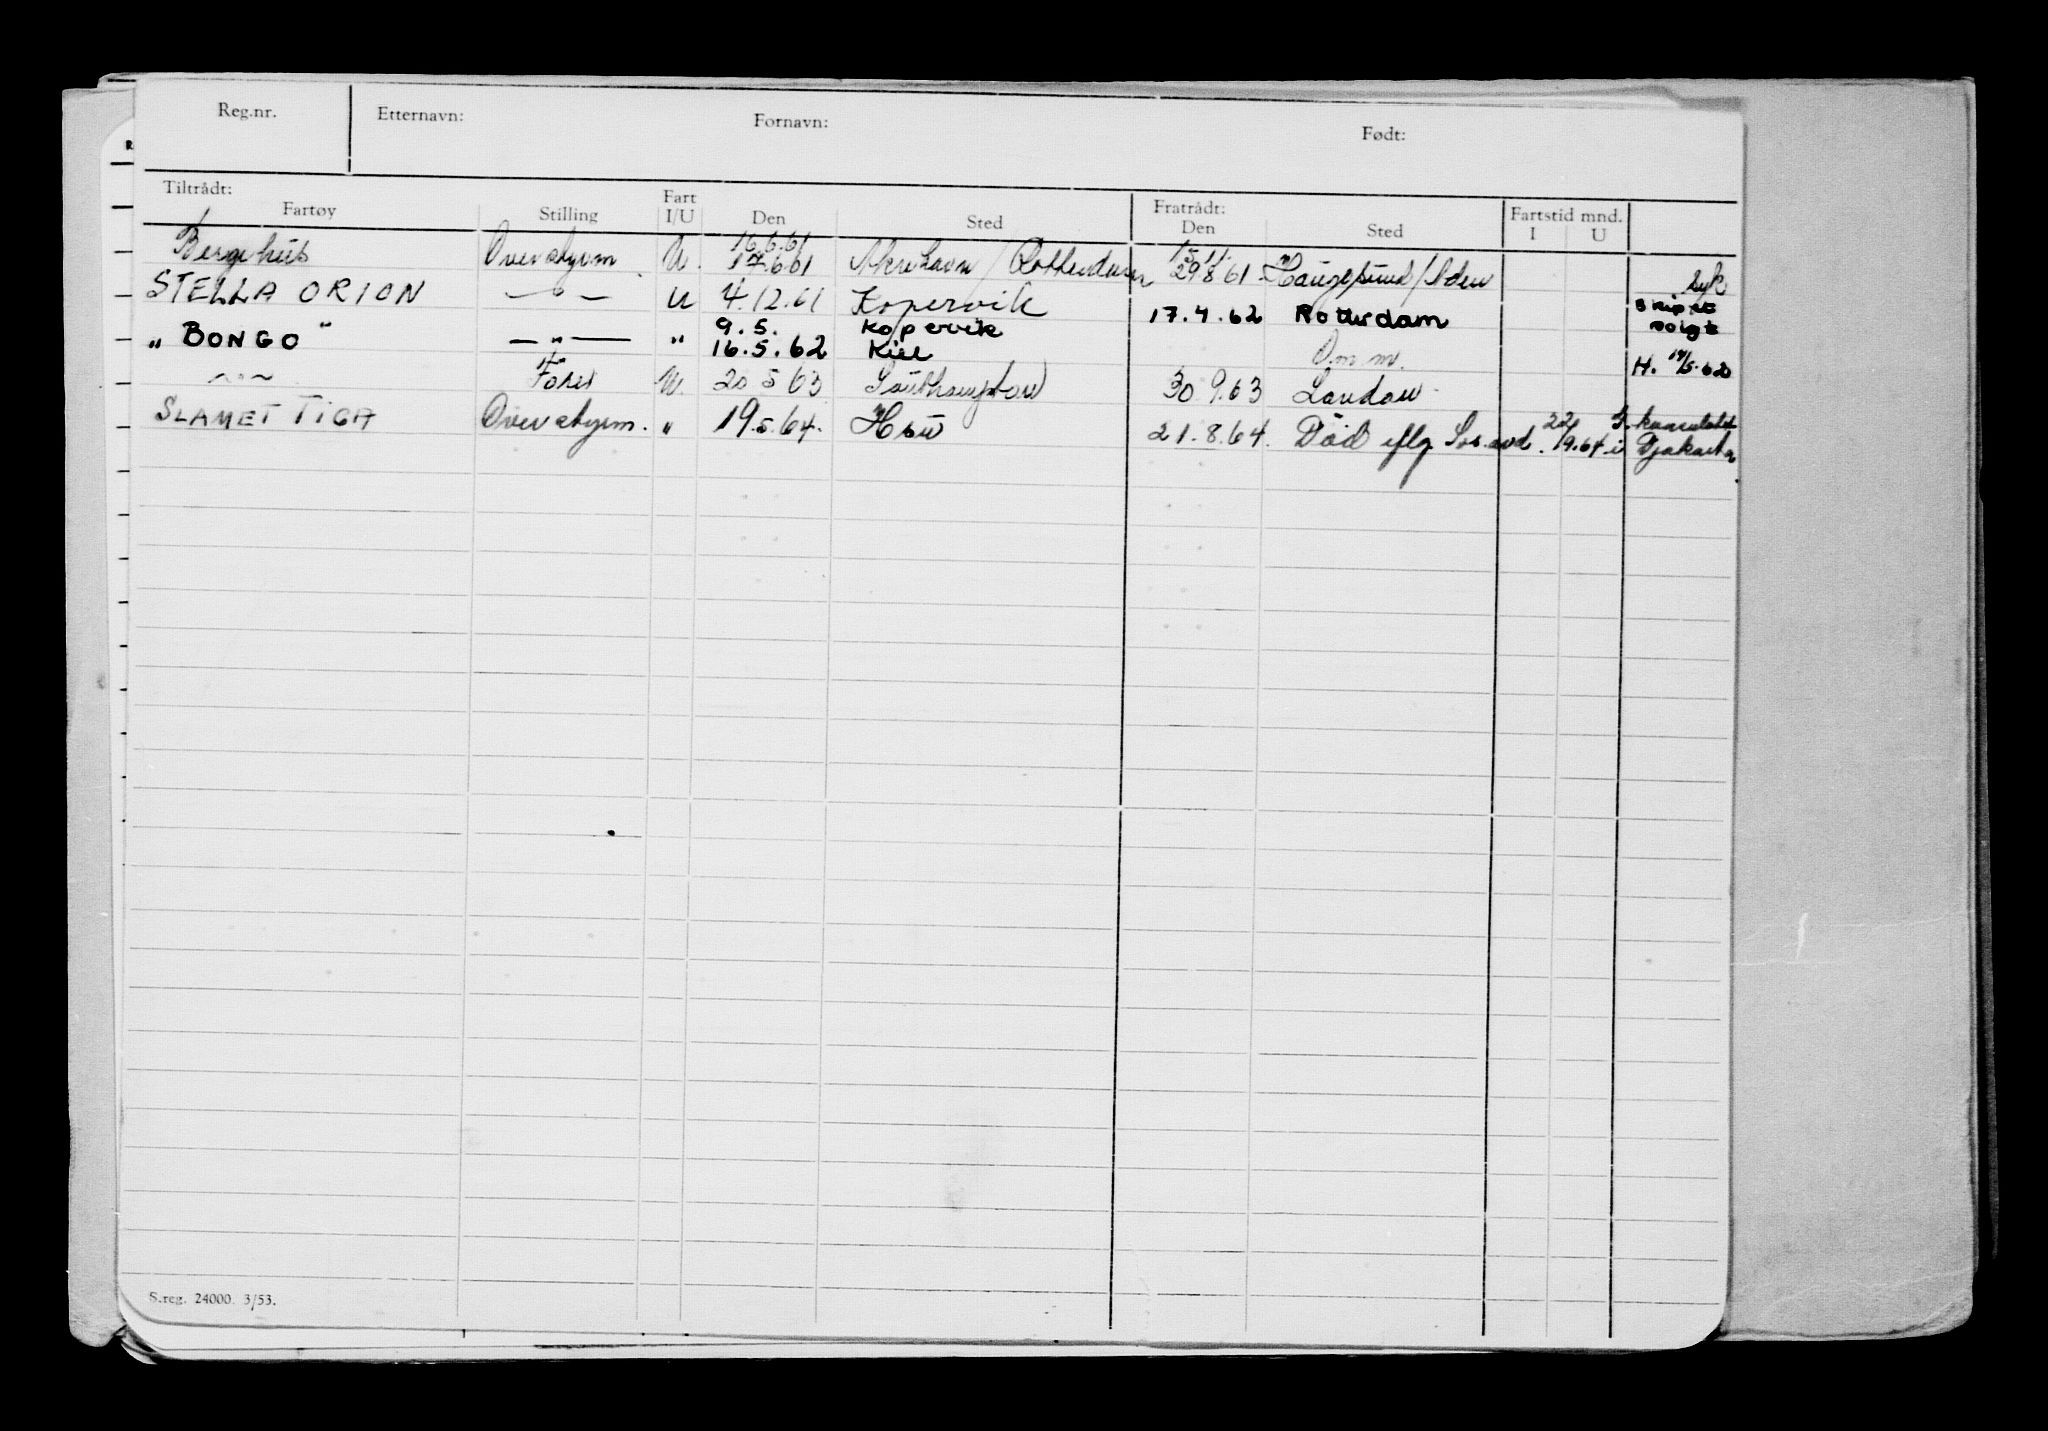 Reg.nr. Etternavn: Fornavn: Født:
Tiltrådt: Fart Fratrådt: Fartstid mnd.
Fartøy Stilling I/U Den Sted Den Sted I U
16.6.61 15.11.
Bergehus Overstyrm. U. 17.6.61 Åkrehavn / Rotterdam 29.8.61 Haugesund / Aden syk
STELLA ORION — " — U 4.12.61 Kopervik 17.4.62 Rotterdam Skipet solgt
9.5. Kopervik
„ BONGO " — " — " 16.5.62 Kiel Omm. H. 19/5.62
U. 20 5 63 Southampton 30.9.63 London
SLAMET TIGA Overstyrm. " 19.5.64. 21.8.64. Död iflg. Sos. avd. 22/9.64 i Djakarta
S.reg. 24000. 3/53.